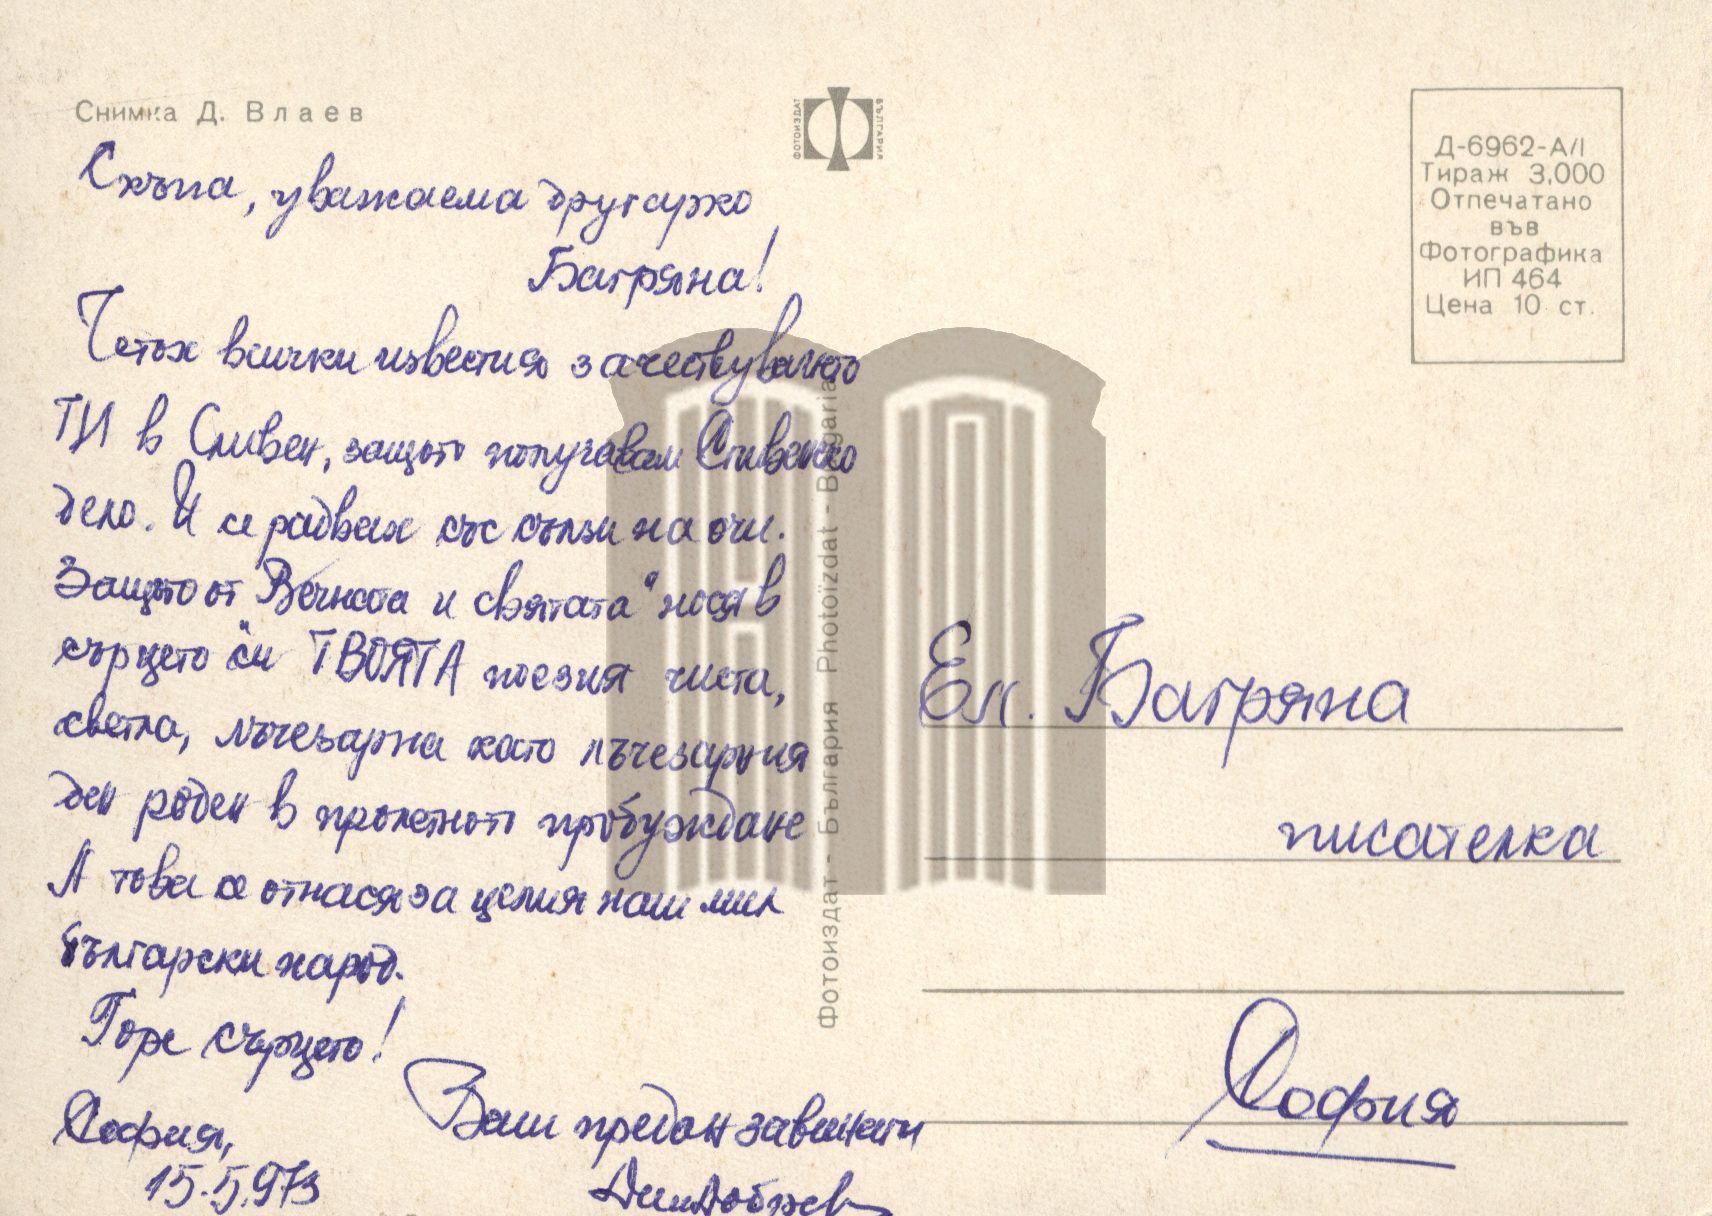 Снимка Д. Влаев
ФОТОИЗДАТ
БЪЛГАРИЯ
Д-6962-А/I
Тираж 3.000
Отпечатано
във
Фотографика
ИП 464
Цена 10 ст.
Скъпа, уважаема другарко
Багряна!
Четох всички известия за чествуването
ТИ в Сливен, защото получавам Сливенско
дело. И се радвах със сълзи на очи.
Защото от "Вечната и святата" нося в
сърцето си ТВОЯТА поезия чиста,
светла, лъчезарна като лъчезарния
ден роден в пролетното пробуждане
А това се отнася за целия наш мил
български народ.
Горе сърцето!
София,
15.5.973
Ваш предан завинаги
Фотоиздат - България Photoizdat - Bulgaria
Ел. Багряна
писателка
София